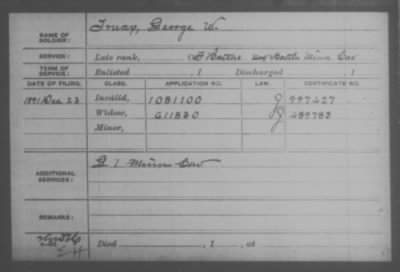 NAME OF SOLDIER: Truax, George W.
SERVICE: Late rank, Minn Cav
TERM OF SERVICE: Enlisted , 1 Discharged , 1
DATE OF FILING. CLASS. APPLICATION NO. LAW. CERTIFICATE NO.
1891 Dec 23 Invalid, 1081100 997427
Widow, 611830
Minor,
ADDITIONAL SERVICES: 1 Minn Cav
REMARKS:
Died , 1 , at